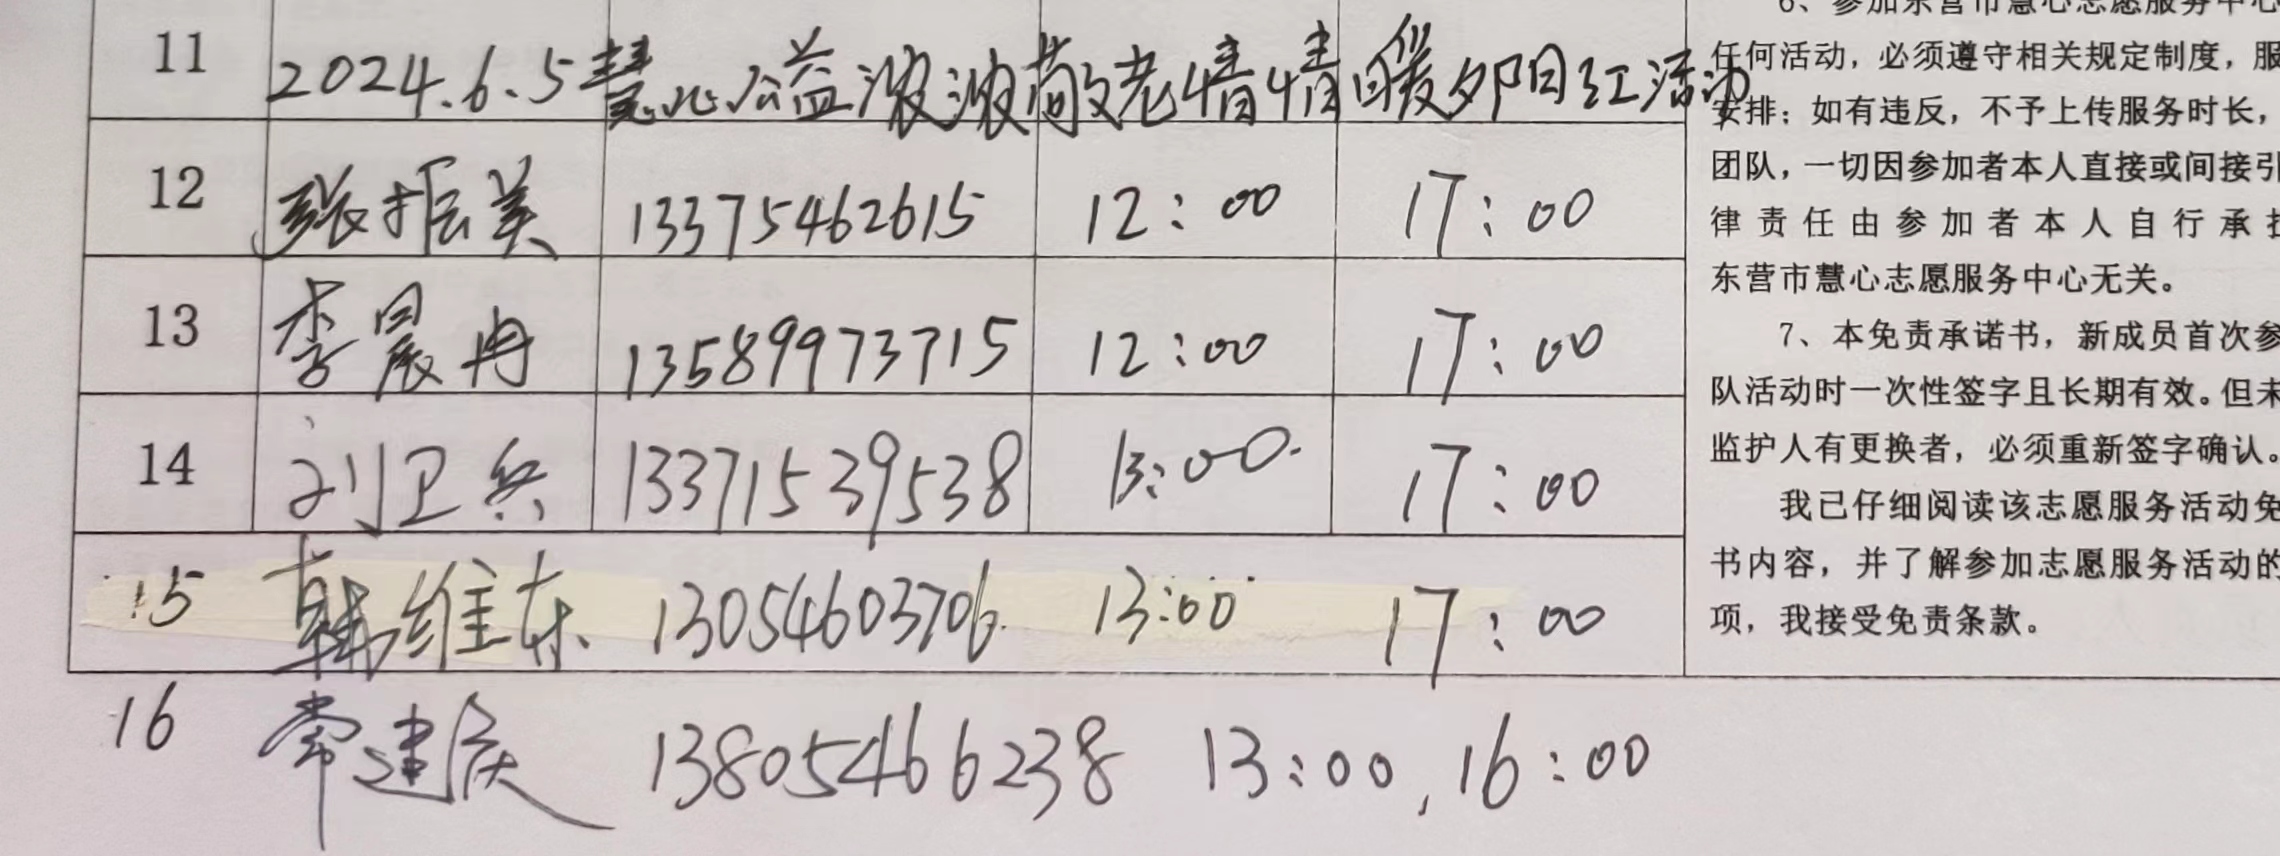 11 2024.6.5慧心公益浓浓敬老情情暖夕阳红活动
12 张振美 13375462615 12:00 17:00
13 李晨冉 13589973715 12:00 17:00
14 刘卫兵 13371539538 13:00. 17:00
15 韩维东 13054603706. 13:00 17:00
16 常建庆 13805466238 13:00, 16:00
6、参加东营市慧心志愿服务中心
任何活动，必须遵守相关规定制度，服
安排；如有违反，不予上传服务时长，
团队，一切因参加者本人直接或间接引
律责任由参加者本人自行承担
东营市慧心志愿服务中心无关。
7、本免责承诺书，新成员首次参
队活动时一次性签字且长期有效。但未
监护人有更换者，必须重新签字确认。
我已仔细阅读该志愿服务活动免
书内容，并了解参加志愿服务活动的
项，我接受免责条款。